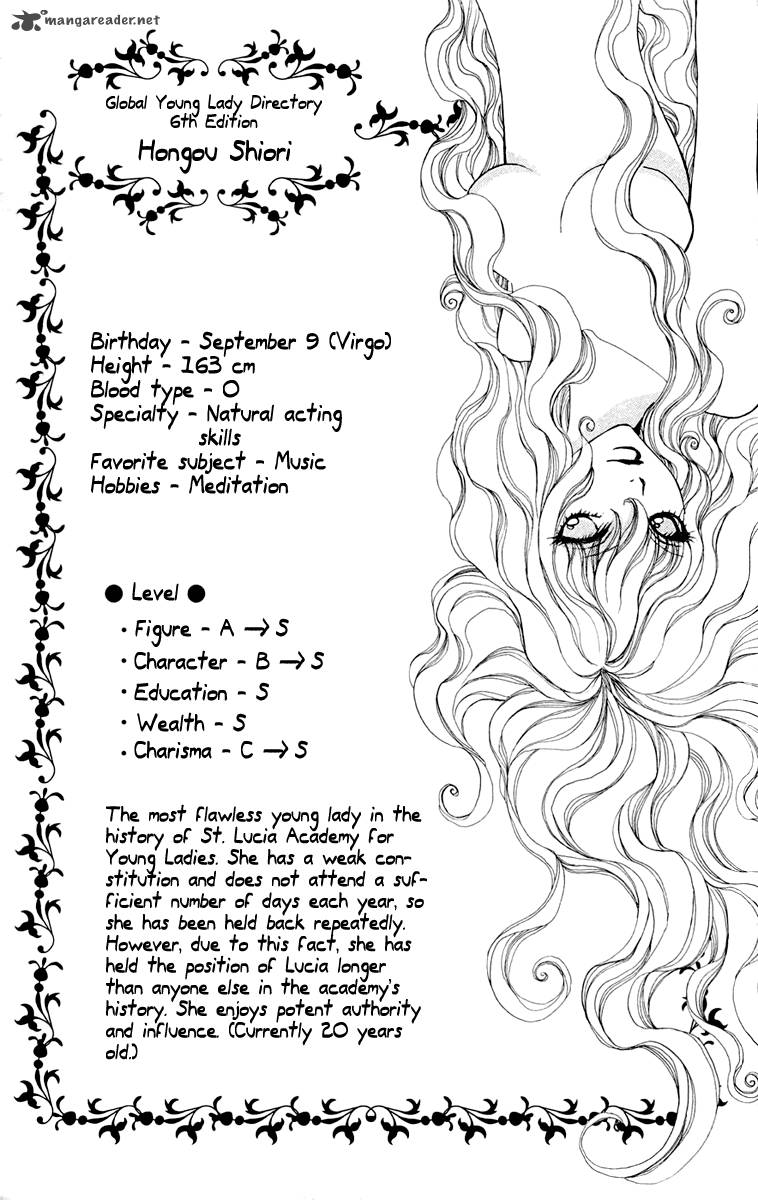 mangareader.net
Global Young Lady Directory
6th Edition
Hongou Shiori
Birthday - September 9 (Virgo)
Height - 163 cm
Blood type - O
Specialty - Natural acting
skills
Favorite subject - Music
Hobbies - Meditation
● Level ●
・Figure - A → S
・Character - B → S
・Education - S
・Wealth - S
・Charisma - C → S
The most flawless young lady in the
history of St. Lucia Academy for
Young Ladies. She has a weak con-
stitution and does not attend a suf-
ficient number of days each year, so
she has been held back repeatedly.
However, due to this fact, she has
held the position of Lucia longer
than anyone else in the academy's
history. She enjoys potent authority
and influence. (Currently 20 years
old.)